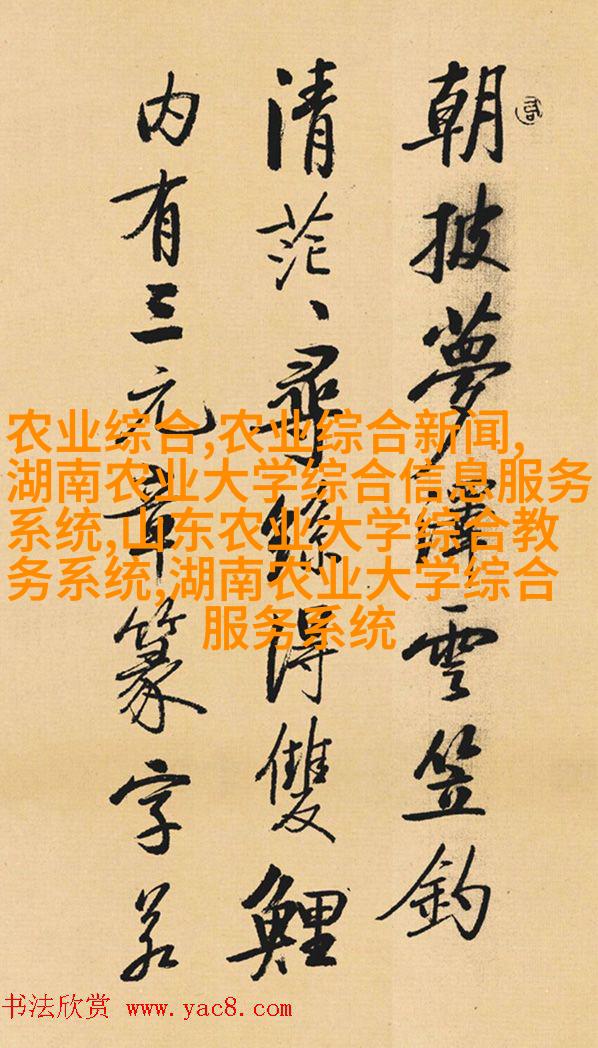 朝披夢澤雲笠釣
清茫、尋絲得雙鯉
内有三元章篆字若
农业综合,农业综合新闻,
湖南农业大学综合信息服务
系统,山东农业大学综合教
务系统,湖南农业大学综合
服务系统
书法欣赏 www.yac8.com